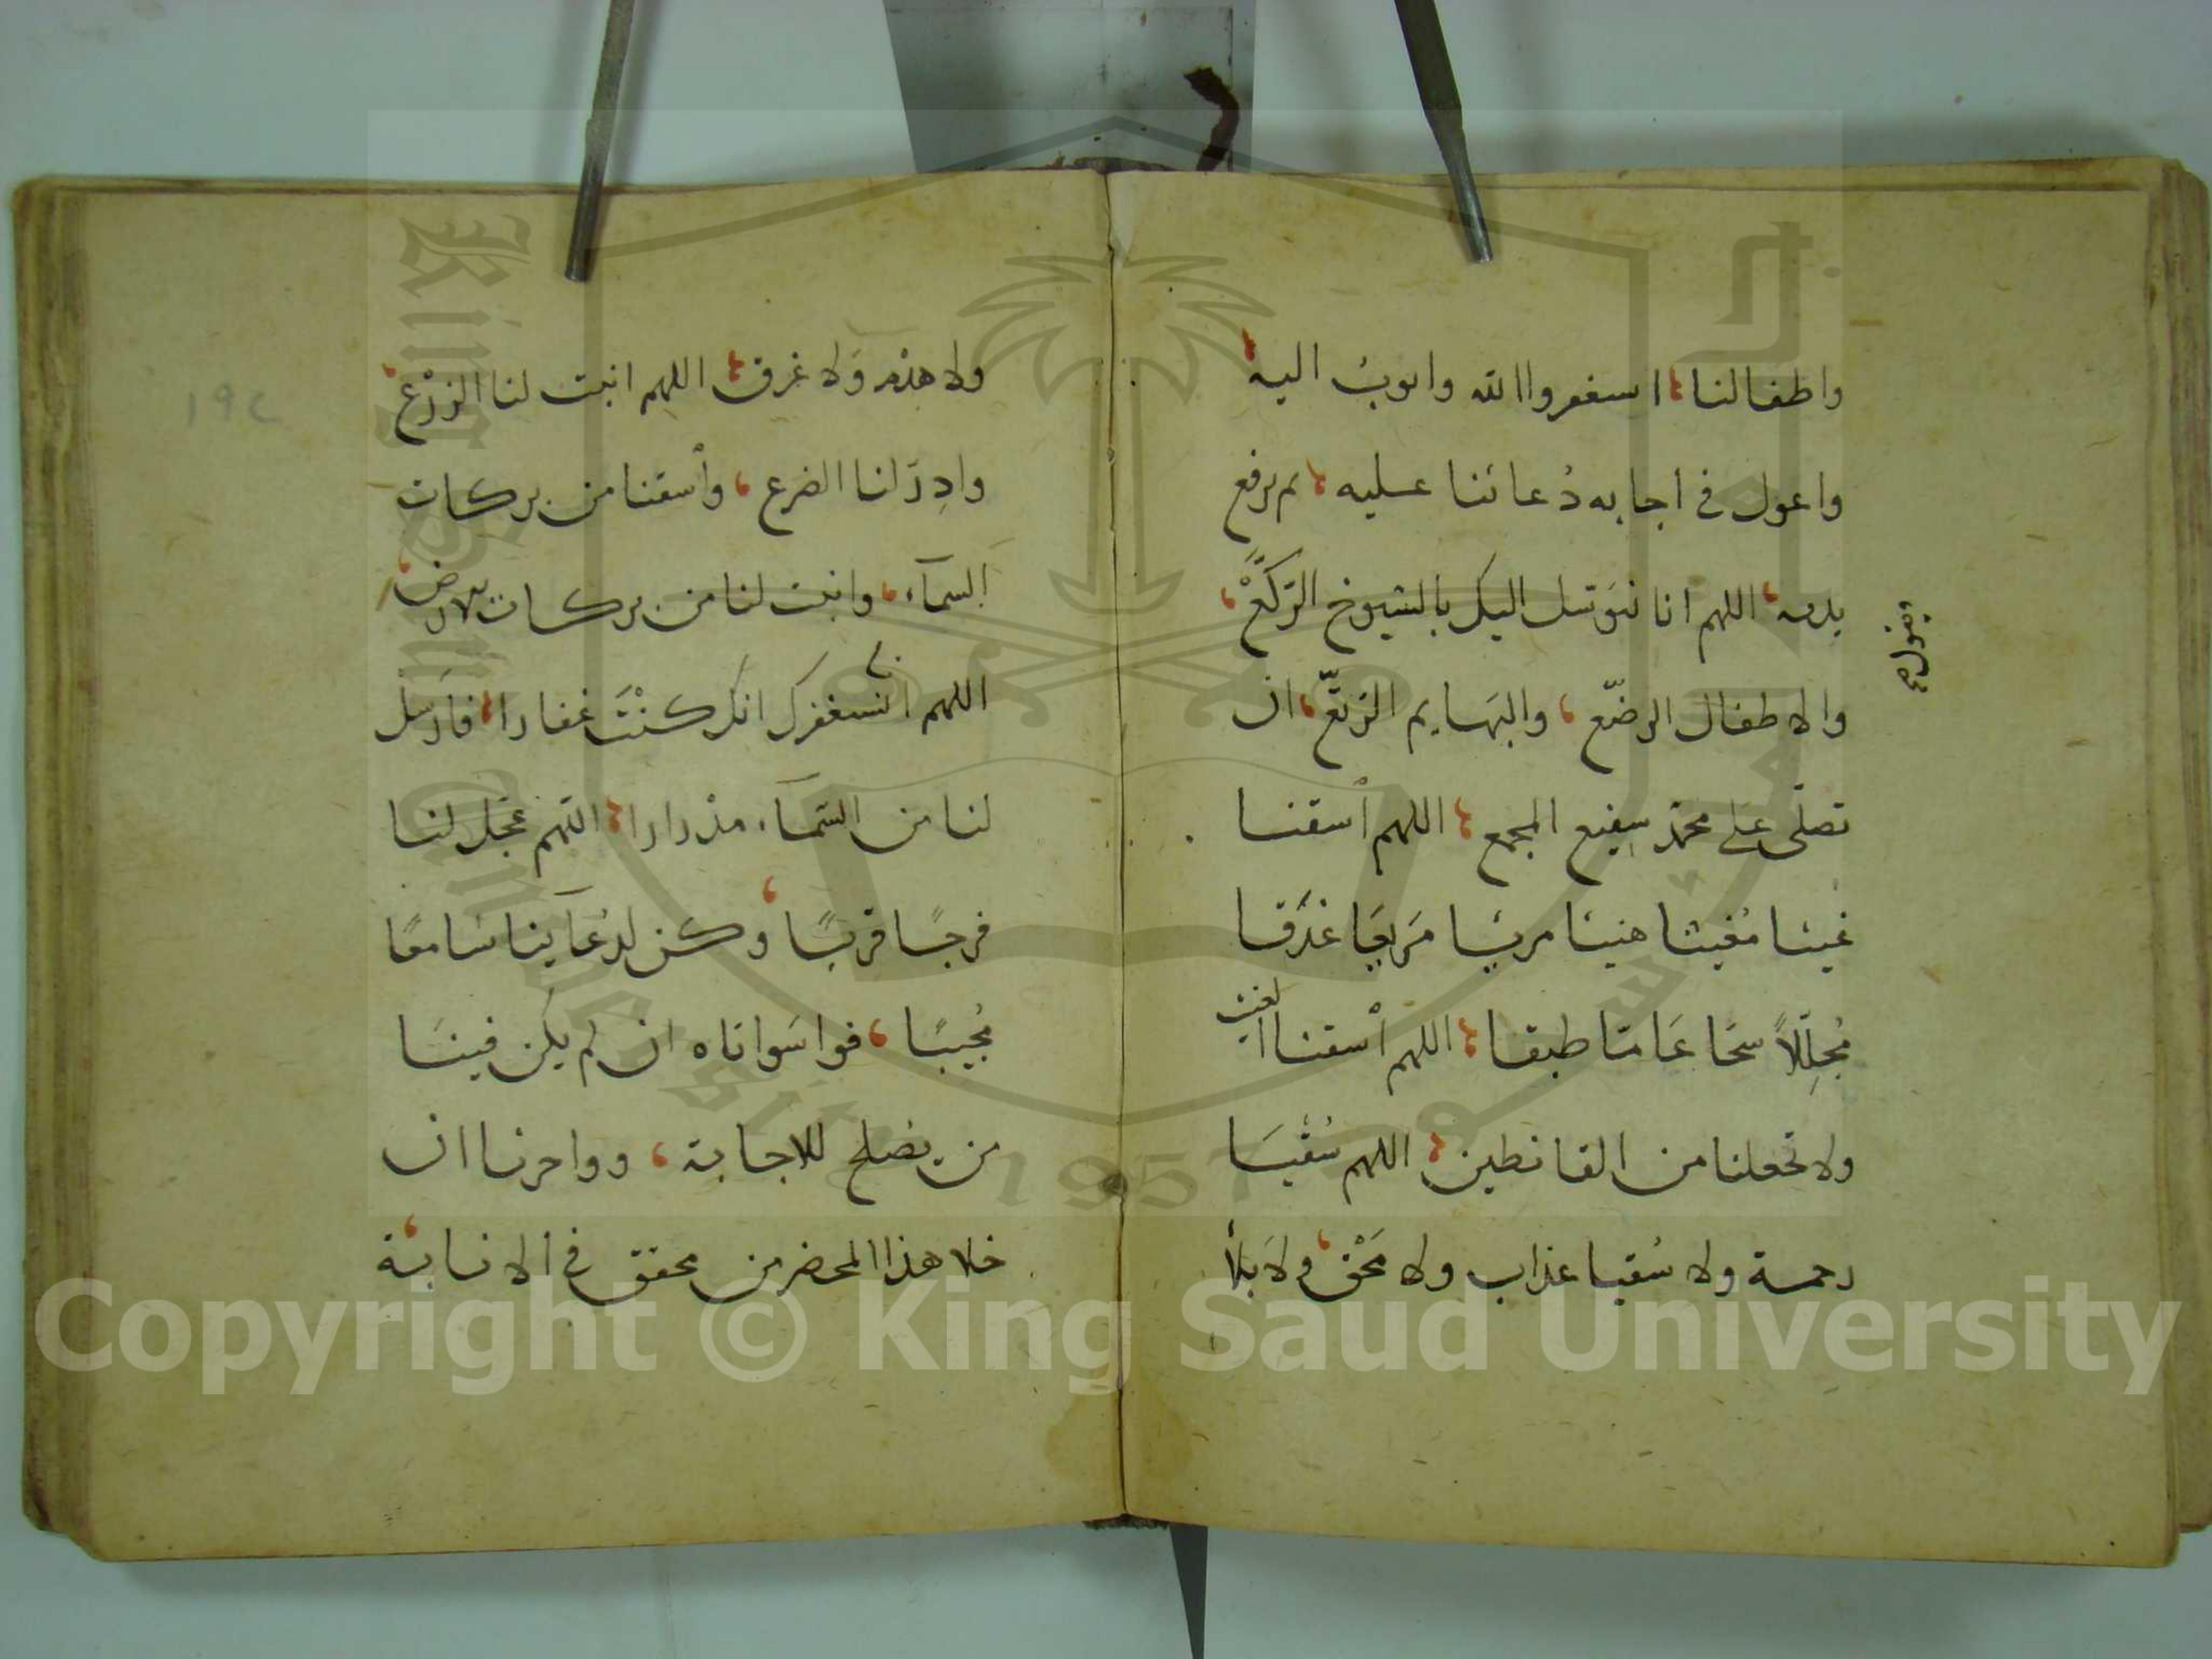 واطفالنا، استغفروا الله واتوبُ اليه،
واعول في اجابه دُعائنا عليه، ثم يرفع
يديه، اللهم انا نتوَسل اليك بالشيوخ الرّكّعْ،
ويقول صح
والاطفال الرضّع، والبَهايم الرّتّع، ان
تصلّى على محمّد شفيع المجمع، اللهم اسقنا
غيثا مُغيثا هنيئا مريئا مَريعَا غدَقا
مُجلِّلاً سحّا عَامّا طبقا، اللهم اسقنا الغيث
ولا تجعلنا من القانطين، اللهم سُقيَا
رحمة ولا سُقيا عذاب ولا مَحْق، ولا بَلأ
ولا هدْم وَلا غرق، اللهم انبت لنا الزرْع،
وادِرّ لنا الضرع، وأسقنا من بركات
السمآء، وانبت لنا من بركات الارض،
اللهم انا نستغفرك انك كنْتَ غفارا، فأرسل
لنا من السّمآء مدْرارا، اللّهم عجّل لنا
فرجًا قريبًا، وكن لدعآئنا سامعًا
مُجيبًا، فواسَواتاه ان لم يكن فينَا
من يصلح للاجابة، وواحزنا ان
خلا هذا المحضر من محقق في الانابة،
١٩٢
Copyright © King Saud University
King Saud University
1957